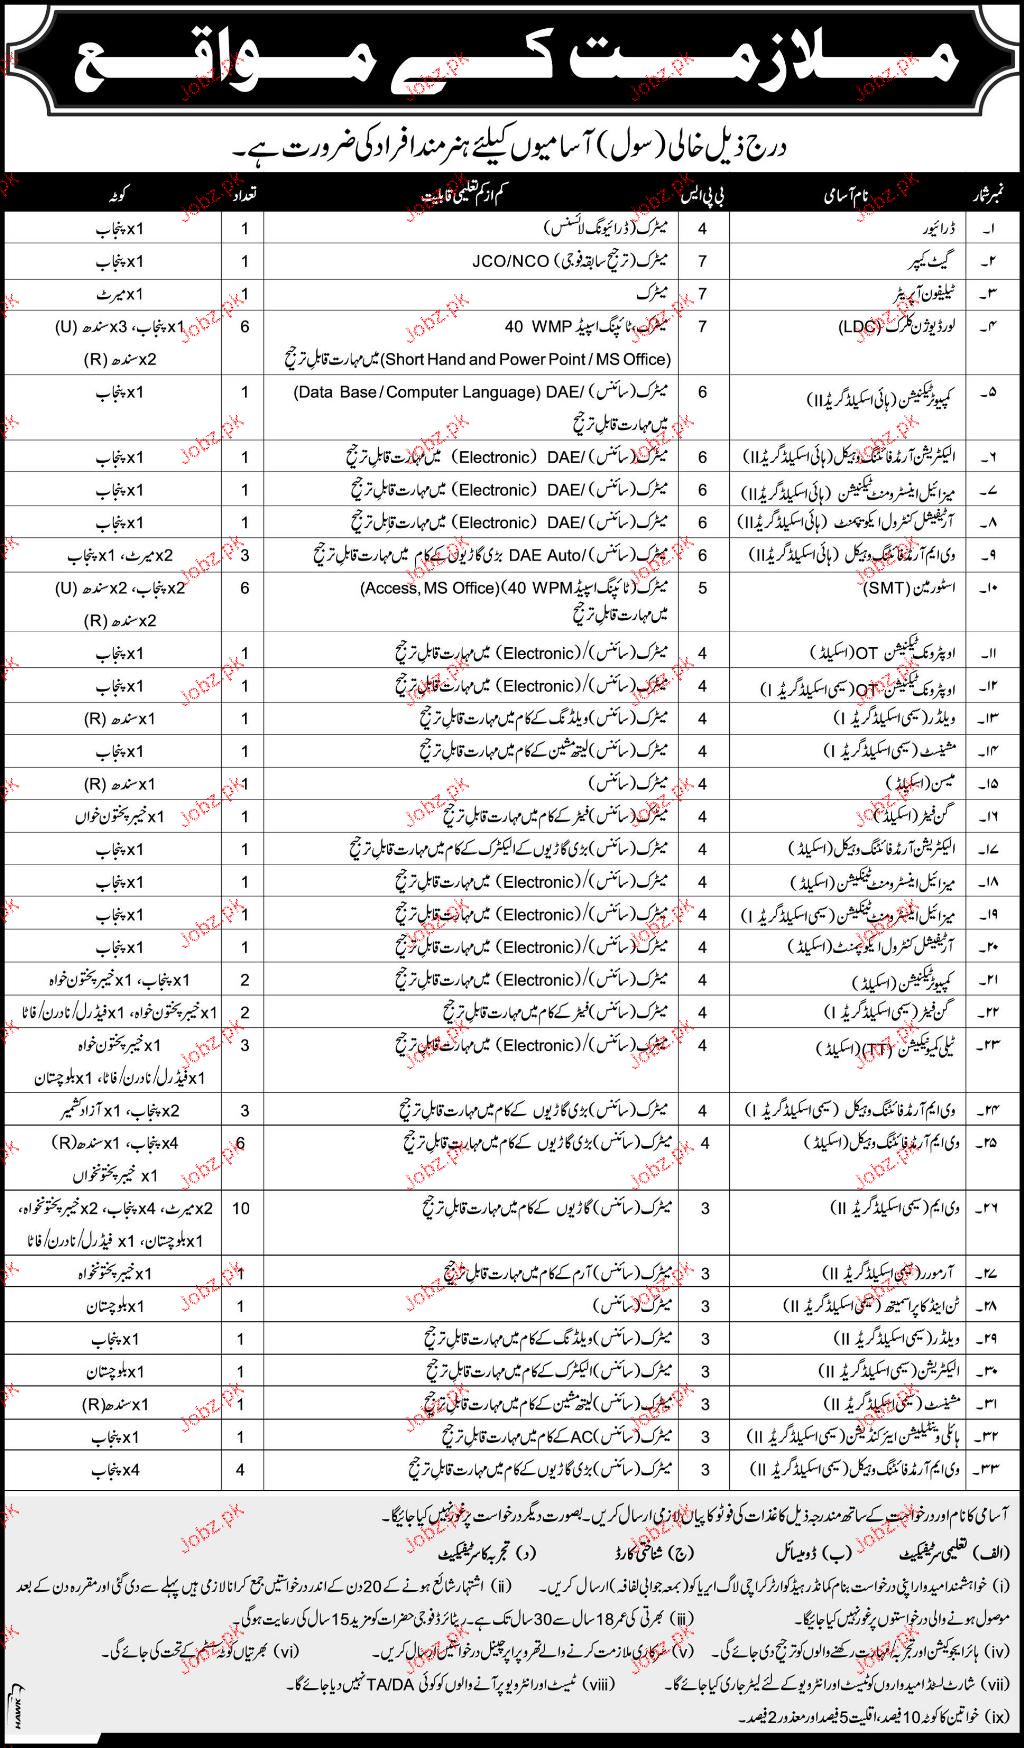 ملازمت کے مواقع
درج ذیل خالی (سول) آسامیوں کیلئے ہنرمند افراد کی ضرورت ہے۔
نمبر شمار نام آسامی بی پی ایس کم از کم تعلیمی قابلیت تعداد کوٹہ
۱۔ ڈرائیور 4 میٹرک (ڈرائیونگ لائسنس) 1 1xپنجاب
۲۔ گیٹ کیپر 7 میٹرک (ترجیح سابقہ فوجی) JCO/NCO 1 1xپنجاب
۳۔ ٹیلیفون آپریٹر 7 میٹرک 1 1xمیرٹ
۴۔ لورڈیوژن کلرک (LDC) 7 میٹرک، ٹائپنگ اسپیڈ 40 WMP 6 1xپنجاب، 3xسندھ (U)
(Short Hand and Power Point / MS Office) میں مہارت قابلِ ترجیح 2xسندھ (R)
۵۔ کمپیوٹر ٹیکنیشن (ہائی اسکیلڈ گریڈ II) 6 میٹرک (سائنس) /DAE (Data Base / Computer Language) 1 1xپنجاب
میں مہارت قابلِ ترجیح
۶۔ الیکٹریشن آرمڈ فائٹنگ وہیکل (ہائی اسکیلڈ گریڈ II) 6 میٹرک (سائنس) /DAE (Electronic) میں مہارت قابلِ ترجیح 1 1xپنجاب
۷۔ میزائیل اینسٹرومنٹ ٹیکنیشن (ہائی اسکیلڈ گریڈ II) 6 میٹرک (سائنس) /DAE (Electronic) میں مہارت قابلِ ترجیح 1 1xپنجاب
۸۔ آرٹیفیشل کنٹرول ایکوپمنٹ (ہائی اسکیلڈ گریڈ II) 6 میٹرک (سائنس) /DAE (Electronic) میں مہارت قابلِ ترجیح 1 1xپنجاب
۹۔ وی ایم آرمڈ فائٹنگ وہیکل (ہائی اسکیلڈ گریڈ II) 6 میٹرک (سائنس) /DAE Auto بڑی گاڑیوں کے کام میں مہارت قابلِ ترجیح 3 2xمیرٹ، 1xپنجاب
۱۰۔ اسٹورمین (SMT) 5 میٹرک (ٹائپنگ اسپیڈ 40 WPM) (Access, MS Office) 6 2xپنجاب، 2xسندھ (U)
میں مہارت قابلِ ترجیح 2xسندھ (R)
۱۱۔ اوپٹرونک ٹیکنیشن OT (اسکیلڈ) 4 میٹرک (سائنس)/(Electronic) میں مہارت قابلِ ترجیح 1 1xپنجاب
۱۲۔ اوپٹرونک ٹیکنیشن OT (سیمی اسکیلڈ گریڈ I) 4 میٹرک (سائنس)/(Electronic) میں مہارت قابلِ ترجیح 1 1xپنجاب
۱۳۔ ویلڈر (سیمی اسکیلڈ گریڈ I) 4 میٹرک (سائنس) ویلڈنگ کے کام میں مہارت قابلِ ترجیح 1 1xسندھ (R)
۱۴۔ مشینسٹ (سیمی اسکیلڈ گریڈ I) 4 میٹرک (سائنس) لیتھ مشین کے کام میں مہارت قابلِ ترجیح 1 1xپنجاب
۱۵۔ میسن (اسکیلڈ) 4 میٹرک (سائنس) 1 1xسندھ (R)
۱۶۔ گن فیٹر (اسکیلڈ) 4 میٹرک (سائنس) فیٹر کے کام میں مہارت قابلِ ترجیح 1 1xخیبر پختون خواں
۱۷۔ الیکٹریشن آرمڈ فائٹنگ وہیکل (اسکیلڈ) 4 میٹرک (سائنس) بڑی گاڑیوں کے الیکٹرک کے کام میں مہارت قابلِ ترجیح 1 1xپنجاب
۱۸۔ میزائیل اینسٹرومنٹ ٹیکنیشن (اسکیلڈ) 4 میٹرک (سائنس)/(Electronic) میں مہارت قابلِ ترجیح 1 1xپنجاب
۱۹۔ میزائیل اینسٹرومنٹ ٹیکنیشن (سیمی اسکیلڈ گریڈ I) 4 میٹرک (سائنس)/(Electronic) میں مہارت قابلِ ترجیح 1 1xپنجاب
۲۰۔ آرٹیفیشل کنٹرول ایکوپمنٹ (اسکیلڈ) 4 میٹرک (سائنس)/(Electronic) میں مہارت قابلِ ترجیح 1 1xپنجاب
۲۱۔ کمپیوٹر ٹیکنیشن (اسکیلڈ) 4 میٹرک (سائنس)/(Electronic) میں مہارت قابلِ ترجیح 2 1xپنجاب، 1xخیبر پختون خواہ
۲۲۔ گن فیٹر (سیمی اسکیلڈ گریڈ I) 4 میٹرک (سائنس) فیٹر کے کام میں مہارت قابلِ ترجیح 2 1xخیبر پختون خواہ، 1xفیڈرل/نادرن/فاٹا
۲۳۔ ٹیلی کمیونیکیشن (TT) (اسکیلڈ) 4 میٹرک (سائنس)/(Electronic) میں مہارت قابلِ ترجیح 3 1xخیبر پختون خواہ
1xفیڈرل/نادرن/فاٹا، 1xبلوچستان
۲۴۔ وی ایم آرمڈ فائٹنگ وہیکل (سیمی اسکیلڈ گریڈ I) 4 میٹرک (سائنس) بڑی گاڑیوں کے کام میں مہارت قابلِ ترجیح 3 2xپنجاب، 1xآزاد کشمیر
۲۵۔ وی ایم آرمڈ فائٹنگ وہیکل (اسکیلڈ) 4 میٹرک (سائنس) بڑی گاڑیوں کے کام میں مہارت قابلِ ترجیح 6 4xپنجاب، 1xسندھ (R)
1xخیبر پختونخواں
۲۶۔ وی ایم (سیمی اسکیلڈ گریڈ II) 3 میٹرک (سائنس) گاڑیوں کے کام میں مہارت قابلِ ترجیح 10 2xمیرٹ، 4xپنجاب، 2xخیبر پختونخواہ،
1xبلوچستان، 1xفیڈرل/نادرن/فاٹا
۲۷۔ آرمورر (سیمی اسکیلڈ گریڈ II) 3 میٹرک (سائنس) آرم کے کام میں مہارت قابلِ ترجیح 1 1xخیبر پختونخواہ
۲۸۔ ٹن اینڈ کاپر اسمیتھ (سیمی اسکیلڈ گریڈ II) 3 میٹرک (سائنس) 1 1xبلوچستان
۲۹۔ ویلڈر (سیمی اسکیلڈ گریڈ II) 3 میٹرک (سائنس) ویلڈنگ کے کام میں مہارت قابلِ ترجیح 1 1xپنجاب
۳۰۔ الیکٹریشن (سیمی اسکیلڈ گریڈ II) 3 میٹرک (سائنس) الیکٹرک کے کام میں مہارت قابلِ ترجیح 1 1xبلوچستان
۳۱۔ مشینسٹ (سیمی اسکیلڈ گریڈ II) 3 میٹرک (سائنس) لیتھ مشین کے کام میں مہارت قابلِ ترجیح 1 1xسندھ (R)
۳۲۔ ہائلی وینٹیلیشن ایئرکنڈیشن (سیمی اسکیلڈ گریڈ II) 3 میٹرک (سائنس) AC کے کام میں مہارت قابلِ ترجیح 1 1xپنجاب
۳۳۔ وی ایم آرمڈ فائٹنگ وہیکل (سیمی اسکیلڈ گریڈ II) 3 میٹرک (سائنس) بڑی گاڑیوں کے کام میں مہارت قابلِ ترجیح 4 4xپنجاب
آسامی کا نام اور درخواست کے ساتھ مندرجہ ذیل کاغذات کی فوٹو کاپیاں لازمی ارسال کریں۔ بصورت دیگر درخواست پر غور نہیں کیا جائیگا۔
(الف) تعلیمی سرٹیفیکیٹ (ب) ڈومیسائل (ج) شناختی کارڈ (د) تجربہ کا سرٹیفکیٹ
(i) خواہشمند امیدوار اپنی درخواست بنام کمانڈر ہیڈ کوارٹر کراچی لاگ ایریا کو (بمعہ جوابی لفافہ) ارسال کریں۔ (ii) اشتہار شائع ہونے کے 20 دن کے اندر درخواستیں جمع کرانا لازمی ہیں پہلے سے دی گئی اور مقررہ دن کے بعد
موصول ہونے والی درخواستوں پر غور نہیں کیا جائیگا۔ (iii) بھرتی کی عمر 18 سال سے 30 سال تک ہے۔ ریٹائرڈ فوجی حضرات کو مزید 15 سال کی رعایت ہوگی۔
(iv) ہائر ایجوکیشن اور تجربہ/مہارت رکھنے والوں کو ترجیح دی جائے گی۔ (v) سرکاری ملازمت کرنے والے تھرو پراپر چینل درخواستیں ارسال کریں۔ (vi) بھرتیاں کوٹہ سسٹم کے تحت کی جائے گی۔
(vii) شارٹ لسٹڈ امیدواروں کو ٹیسٹ اور انٹرویو کے لئے لیٹر جاری کیا جائے گا۔ (viii) ٹیسٹ اور انٹرویو پر آنے والوں کو کوئی TA/DA نہیں دیا جائے گا۔
(ix) خواتین کا کوٹہ 10 فیصد، اقلیت 5 فیصد اور معذور 2 فیصد۔
HAWK
Jobz.pk